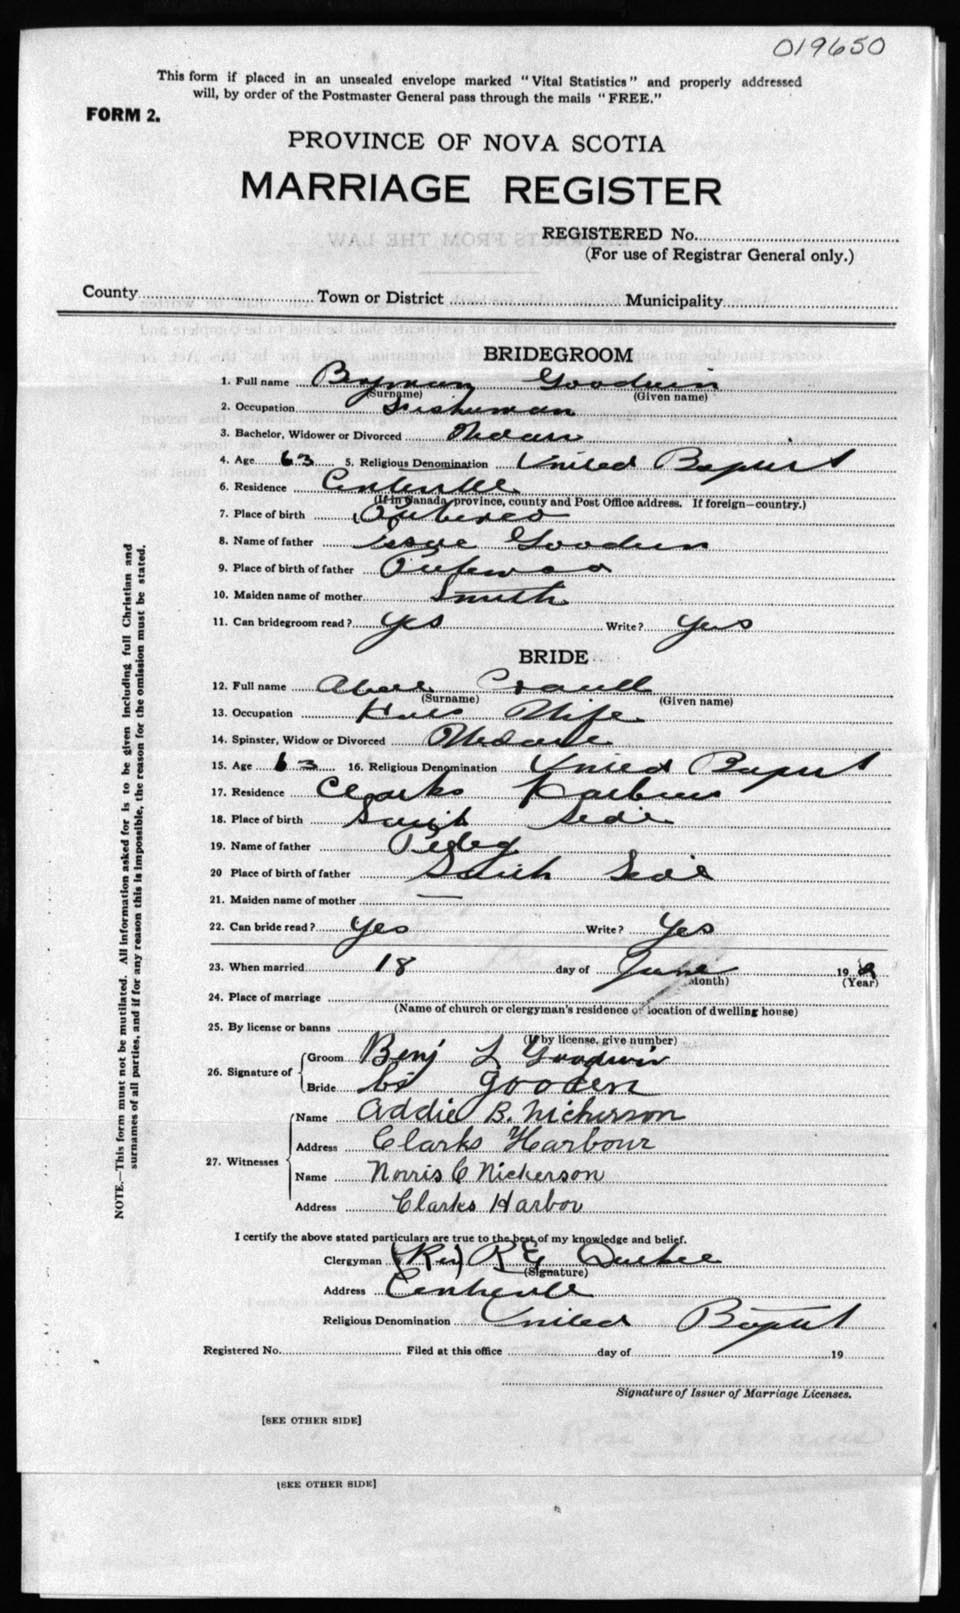 019650
This form if placed in an unsealed envelope marked "Vital Statistics" and properly addressed
will, by order of the Postmaster General pass through the mails "FREE."
FORM 2.
PROVINCE OF NOVA SCOTIA
MARRIAGE REGISTER
REGISTERED No.
(For use of Registrar General only.)
County Town or District Municipality
BRIDEGROOM
1. Full name Goodwin
(Surname) (Given name)
2. Occupation Fisherman
3. Bachelor, Widower or Divorced
4. Age 63 5. Religious Denomination United Baptist
6. Residence Centreville
(If in Canada, province, county and Post Office address. If foreign—country.)
7. Place of birth
8. Name of father Isaac Goodwin
9. Place of birth of father
10. Maiden name of mother Smith
11. Can bridegroom read? Yes Write? Yes
BRIDE
12. Full name
(Surname) (Given name)
13. Occupation Wife
14. Spinster, Widow or Divorced
15. Age 63 16. Religious Denomination United Baptist
17. Residence Clarks Harbour
18. Place of birth Side
19. Name of father
20 Place of birth of father South Side
21. Maiden name of mother —
22. Can bride read? Yes Write? Yes
23. When married 18 day of June 19
(Month) (Year)
24. Place of marriage
(Name of church or clergyman's residence or location of dwelling house)
25. By license or banns
(If by license, give number)
26. Signature of Groom Benj L Goodwin
Bride gooden
27. Witnesses Name Addie B. Nickerson
Address Clarks Harbour
Name Norris C Nickerson
Address Clarks Harbor
I certify the above stated particulars are true to the best of my knowledge and belief.
Clergyman (Rev) R E
(Signature)
Address Centreville
Religious Denomination United Baptist
Registered No. Filed at this office day of 19
Signature of Issuer of Marriage Licenses.
[SEE OTHER SIDE]
[SEE OTHER SIDE]
NOTE.—This form must not be mutilated. All information asked for is to be given including full Christian and
surnames of all parties, and if for any reason this is impossible, the reason for the omission must be stated.